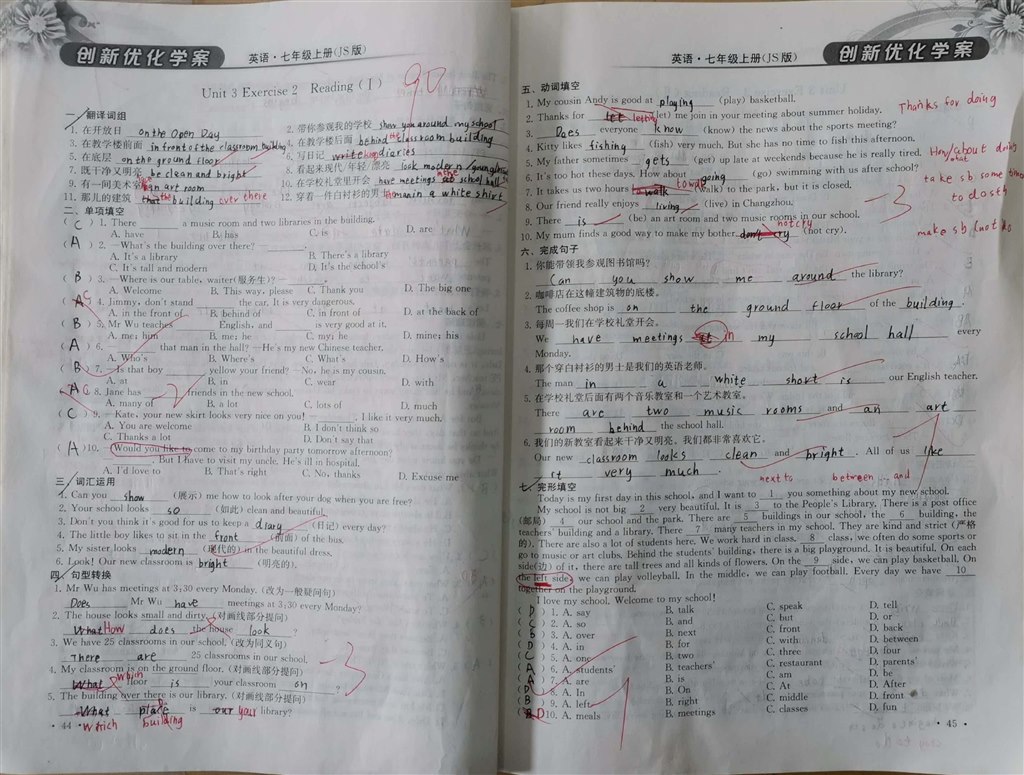 创新优化学案
英语·七年级上册(JS版)
Unit 3 Exercise 2 Reading (Ⅰ)
90
一、翻译词组
1. 在开放日 on the Open Day
2. 带你参观我的学校 show you around my school
3. 在教学楼前面 in front of the classroom building
4. 在教学楼后面 behind the classroom building
5. 在底层 on the ground floor
6. 写日记 write diaries
7. 既干净又明亮 be clean and bright
8. 看起来现代/年轻/漂亮 look modern /
9. 有一间美术室 an art room
10. 在学校礼堂里开会 have meetings in the school hall
11. 那儿的建筑 the building over there
12. 穿着一件白衬衫的男士 man in a white shirt
二、单项填空
( C ) 1. There ____ a music room and two libraries in the building.
A. have B. has C. is D. are
( A ) 2. —What's the building over there? ____.
A. It's a library B. There's a library
C. It's tall and modern D. It's the school's
( B ) 3. —Where is our table, waiter(服务生)? —____.
A. Welcome B. This way, please C. Thank you D. The big one
( A C ) 4. Jimmy, don't stand ____ the car. It is very dangerous.
A. in the front of B. behind of C. in front of D. at the back of
( B ) 5. Mr Wu teaches ____ English, and ____ is very good at it.
A. me; him B. me; he C. my; he D. mine; his
( A ) 6. ____ that man in the hall? —He's my new Chinese teacher.
A. Who's B. Where's C. What's D. How's
( B ) 7. —Is that boy ____ yellow your friend? —No, he is my cousin.
A. at B. in C. wear D. with
( A C ) 8. Jane has ____ friends in the new school.
A. many of B. a lot C. lots of D. much
( C ) 9. —Kate, your new skirt looks very nice on you! —____. I like it very much.
A. You are welcome B. I don't think so
C. Thanks a lot D. Don't say that
( A ) 10. —Would you like to come to my birthday party tomorrow afternoon?
—____. But I have to visit my uncle. He's ill in hospital.
A. I'd love to B. That's right C. No, thanks D. Excuse me
三、词汇运用
1. Can you show (展示) me how to look after your dog when you are free?
2. Your school looks so (如此) clean and beautiful.
3. Don't you think it's good for us to keep a diary (日记) every day?
4. The little boy likes to sit in the front (前面) of the bus.
5. My sister looks modern (现代的) in the beautiful dress.
6. Look! Our new classroom is bright (明亮的).
四、句型转换
1. Mr Wu has meetings at 3:30 every Monday. (改为一般疑问句)
Does Mr Wu have meetings at 3:30 every Monday?
2. The house looks small and dirty. (对画线部分提问)
What How does the house look ?
3. We have 25 classrooms in our school. (改为同义句)
There are 25 classrooms in our school.
4. My classroom is on the ground floor. (对画线部分提问)
What which floor is your classroom on ?
-3
5. The building over there is our library. (对画线部分提问)
What place is our your library?
which building
· 44 ·
英语·七年级上册(JS版)
创新优化学案
五、动词填空
1. My cousin Andy is good at playing (play) basketball.
2. Thanks for let letting (let) me join in your meeting about summer holiday.
Thanks for doing
3. Does everyone know (know) the news about the sports meeting?
4. Kitty likes fishing (fish) very much. But she has no time to fish this afternoon.
5. My father sometimes gets (get) up late at weekends because he is really tired.
How/what about doing
6. It's too hot these days. How about going (go) swimming with us after school?
7. It takes us two hours walk to walk (walk) to the park, but it is closed.
take sb some time to do sth
8. Our friend really enjoys living (live) in Changzhou.
9. There is (be) an art room and two music rooms in our school.
-3
10. My mum finds a good way to make my bother don't cry not cry (not cry).
make sb (not) do
六、完成句子
1. 你能带领我参观图书馆吗?
Can you show me around the library?
2. 咖啡店在这幢建筑物的底楼。
The coffee shop is on the ground floor of the building.
3. 每周一我们在学校礼堂开会。
We have meetings at in my school hall every
Monday.
4. 那个穿白衬衫的男士是我们的英语老师。
The man in a white short is our English teacher.
5. 在学校礼堂后面有两个音乐教室和一个艺术教室。
There are two music rooms and an art
room behind the school hall.
6. 我们的新教室看起来干净又明亮。我们都非常喜欢它。
Our new classroom looks clean and bright. All of us like
it very much.
next to between … and
七、完形填空
Today is my first day in this school, and I want to 1 you something about my new school.
My school is not big 2 very beautiful. It is 3 to the People's Library. There is a post office
(邮局) 4 our school and the park. There are 5 buildings in our school, the 6 building, the
teachers' building and a library. There 7 many teachers in my school. They are kind and strict (严格
的). There are also a lot of students here. We work hard in class. 8 class, we often do some sports or
go to music or art clubs. Behind the students' building, there is a big playground. It is beautiful. On each
side(边) of it, there are tall trees and all kinds of flowers. On the 9 side, we can play basketball. On
the left side, we can play volleyball. In the middle, we can play football. Every day we have 10
together on the playground.
I love my school. Welcome to my school!
( D ) 1. A. say B. talk C. speak D. tell
( C ) 2. A. so B. and C. but D. or
( B ) 3. A. over B. next C. front D. back
( D ) 4. A. in B. for C. with D. between
( C ) 5. A. one B. two C. three D. four
( A ) 6. A. students' B. teachers' C. restaurant D. parents'
( A ) 7. A. are B. is C. am D. be
( D ) 8. A. In B. On C. At D. After
( B ) 9. A. left B. right C. middle D. front
( D ) 10. A. meals B. meetings C. classes D. fun
· 45 ·